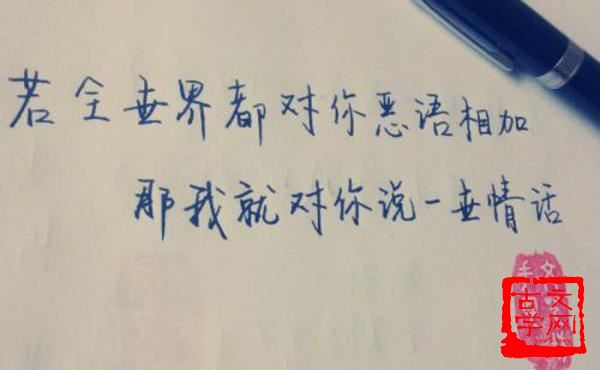 若全世界都对你恶语相加
那我就对你说一世情话
古文
学网